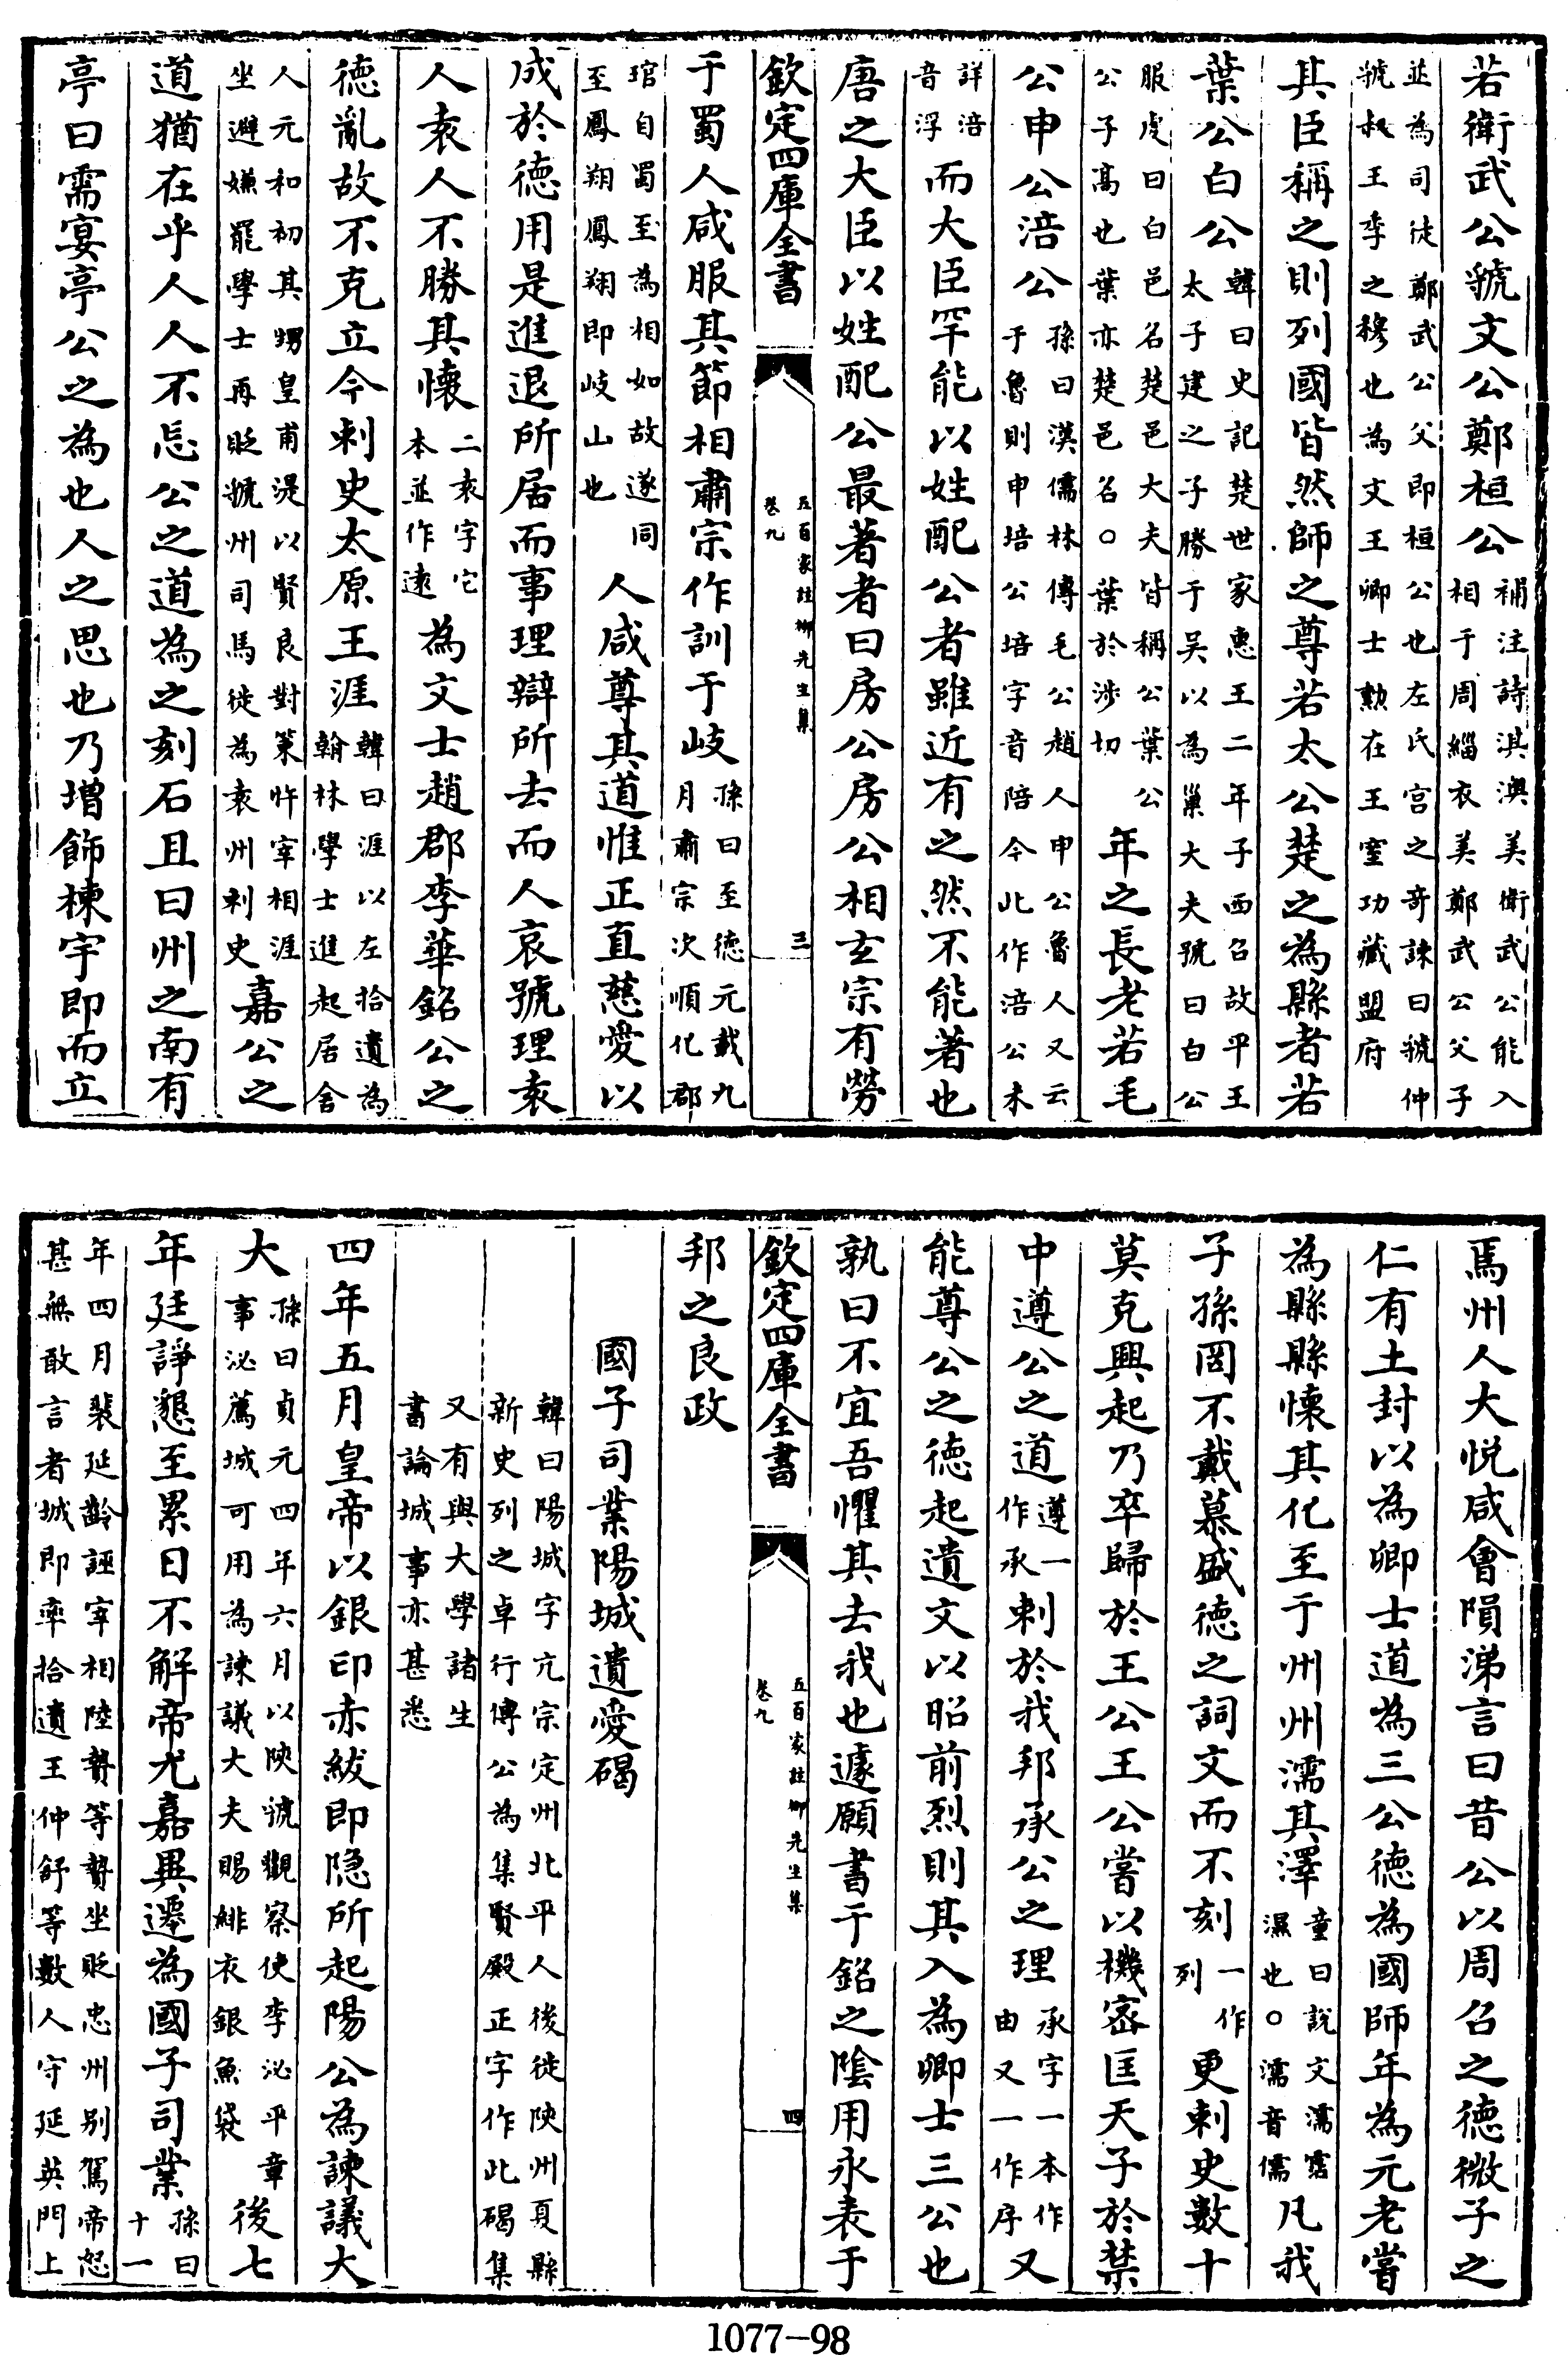 若衛武公虢文公鄭桓公補注詩淇澳美衛武公能入相于周緇衣美鄭武公父子
並為司徒鄭武公父即桓公也左氏宫之奇諫曰虢仲虢叔王季之穆也為文王卿士勲在王室功藏盟府
其臣稱之則列國皆然師之尊若太公楚之為縣者若
葉公白公韓曰史記楚世家惠王二年子西召故平王太子建之子勝于吴以為巢大夫號曰白公
服虔曰白邑名楚邑大夫皆稱公葉公公子髙也葉亦楚邑名○葉於涉切年之長老若毛
公申公涪公孫曰漢儒林傳毛公趙人申公魯人又云于魯則申培公培字音陪今此作涪公未
詳涪音浮而大臣罕能以姓配公者雖近有之然不能著也
唐之大臣以姓配公最著者曰房公房公相玄宗有勞
欽定四庫全書
五百家註柳先生集
卷九
三
于蜀人咸服其節相肅宗作訓于岐孫曰至德元載九月肅宗次順化郡
琯自蜀至為相如故遂同至鳳翔鳳翔即岐山也人咸尊其道惟正直慈愛以
成於德用是進退所居而事理辯所去而人哀號理袁
人袁人不勝其懷二袁字它本並作遠為文士趙郡李華銘公之
德亂故不克立今刺史太原王涯韓曰涯以左拾遺為翰林學士進起居舍
人元和初其甥皇甫湜以賢良對策忤宰相涯坐避嫌罷學士再貶虢州司馬徙為袁州刺史嘉公之
道猶在乎人人不忘公之道為之刻石且曰州之南有
亭曰需宴亭公之為也人之思也乃増飾棟宇即而立
焉州人大悦咸㑹隕涕言曰昔公以周召之徳微子之
仁有土封以為卿士道為三公徳為國師年為元老嘗
為縣縣懷其化至于州州濡其澤童曰說文濡霑濕也○濡音儒凡我
子孫罔不戴慕盛德之詞文而不刻一作列更刺史數十
莫克興起乃卒歸於王公王公嘗以機宻匡天子於禁
中遵公之道遵一作承刺於我邦承公之理承字一本作由又一作序又
能尊公之德起遺文以昭前烈則其入為卿士三公也
孰曰不宜吾懼其去我也遽願書于銘之陰用永表于
欽定四庫全書
五百家註柳先生集
卷九
四
邦之良政
國子司業陽城遺愛碣
韓曰陽城字亢宗定州北平人後徙陜州夏縣新史列之卓行傳公為集賢殿正字作此碣集
又有與大學諸生書論城事亦甚悉
四年五月皇帝以銀印赤紱即隱所起陽公為諫議大
大孫曰貞元四年六月以陜虢觀察使李泌平章事泌薦城可用為諫議大夫賜緋衣銀魚袋後七
年廷諍懇至累日不解帝尤嘉異遷為國子司業孫曰十一
年四月裴延齡誣宰相陸贄等贄坐貶忠州别駕帝怒甚無敢言者城即率拾遺王仲舒等數人守延英門上
1077-98